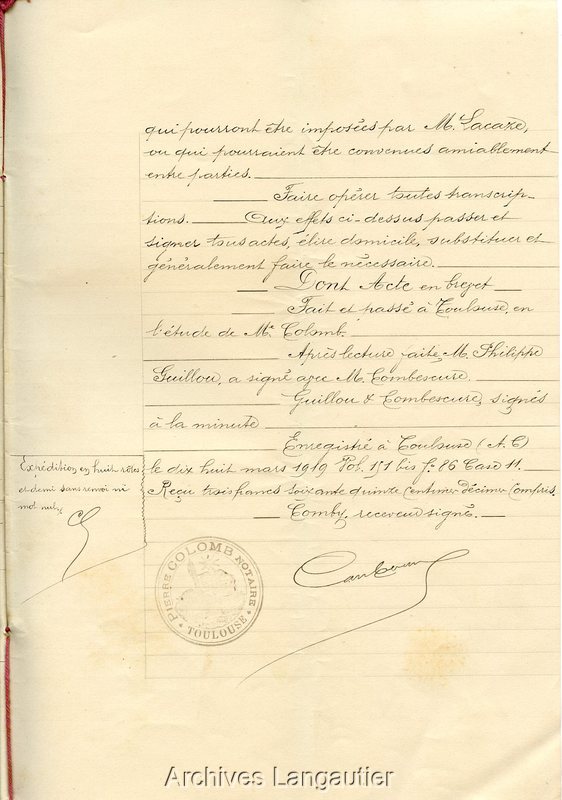 qui pourront être imposées par M. Lacaze,
ou qui pourraient être convenues amiablement
entre parties.
Faire opérer toutes transcrip-
tions. Aux effets ci-dessus passer et
signer tous actes, élire domicile, substituer et
généralement faire le nécessaire.
Dont Acte en brevet
Fait et passé à Toulouse, en
l'étude de Me Colomb.
Après lecture faite M. Philippe
Guillou, a signé avec M. Combescure.
Guillou & Combescure, signés
à la minute
Enregistré à Toulouse (A.C)
le dix huit mars 1919 Vol. 151 bis fo 86 Case 11.
Reçu trois francs soixante quinze centimes décimes compris.
Comby, receveur signé.
Expédition en huit rôles
et demi sans renvoi ni
mot nul
PIERRE COLOMB NOTAIRE
TOULOUSE
Archives Langautier